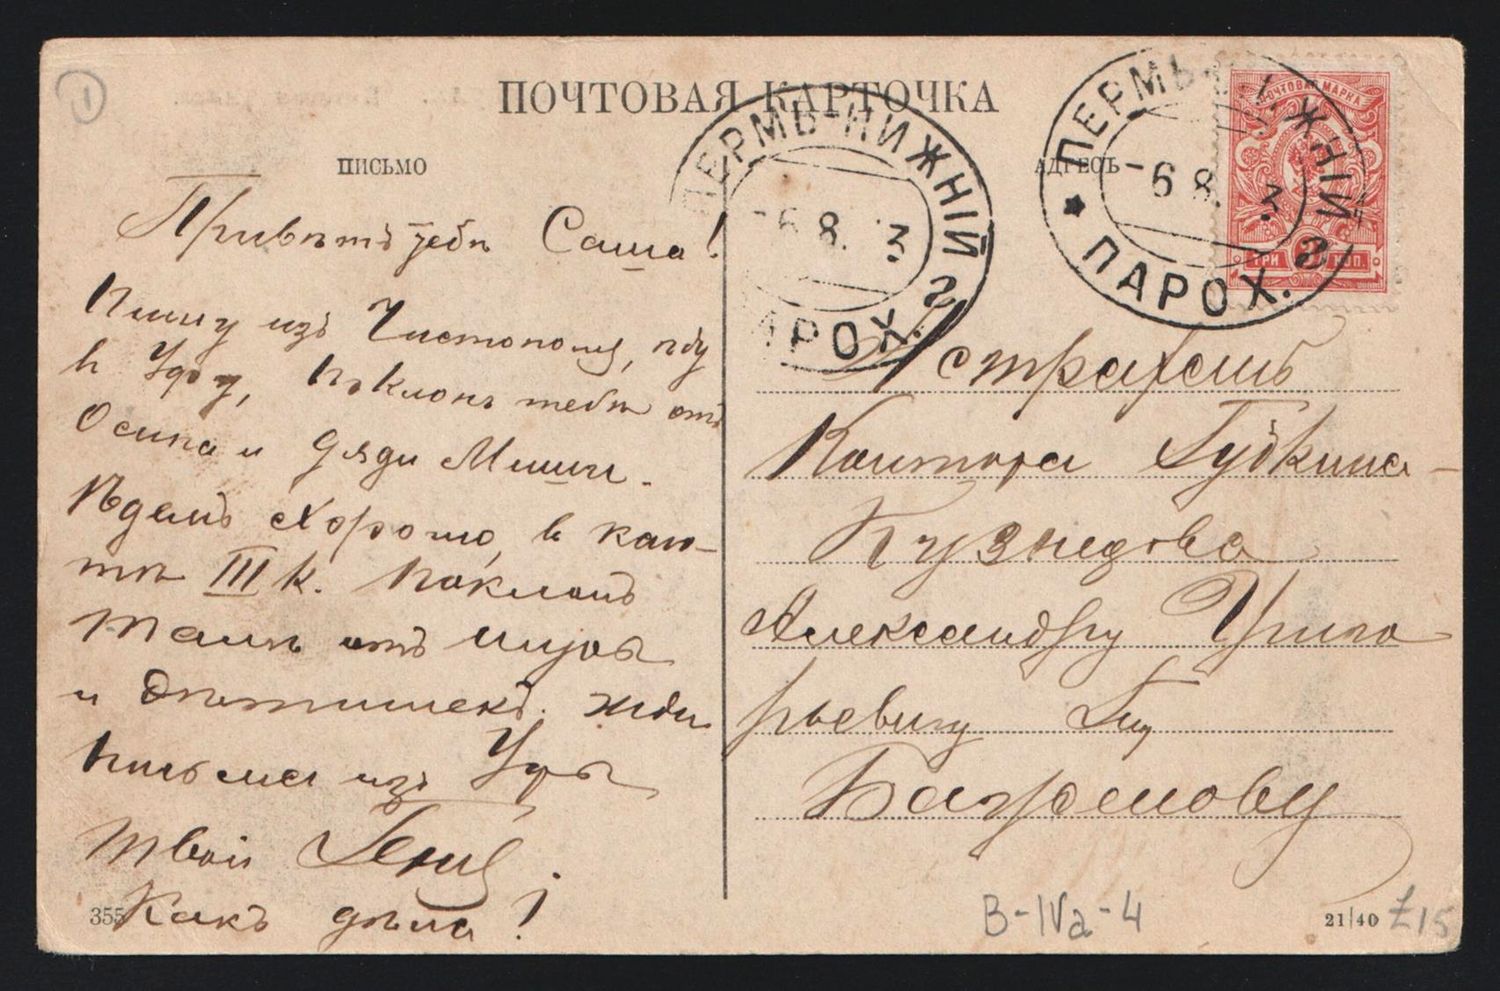 1
ПОЧТОВАЯ КАРТОЧКА
ПИСЬМО
АДРЕСЪ
ПЕРМЬ-НИЖНІЙ
-6 8. 3.
ПАРОХ.
ПЕРМЬ-НИЖНІЙ
-6 8. 3.
ПАРОХ.
ПОЧТОВАЯ МАРКА
ТРИ КОП
Привѣтъ тебѣ Саша!
Пишу изъ Чистополя, ѣду
в Уфу, поклонъ тебѣ отъ
Осипа и дяди Миши.
Ѣдемъ хорошо, в каю-
тѣ III к. Поклонъ
Танѣ отъ
и дѣтишекъ. жди
письма изъ Уфы
твой
Какъ дѣла!
Астрахань
Контора Губкина-
Кузнецова
Александру Григо
рьевичу Гну
355
B-IVa-4
21/40
£15